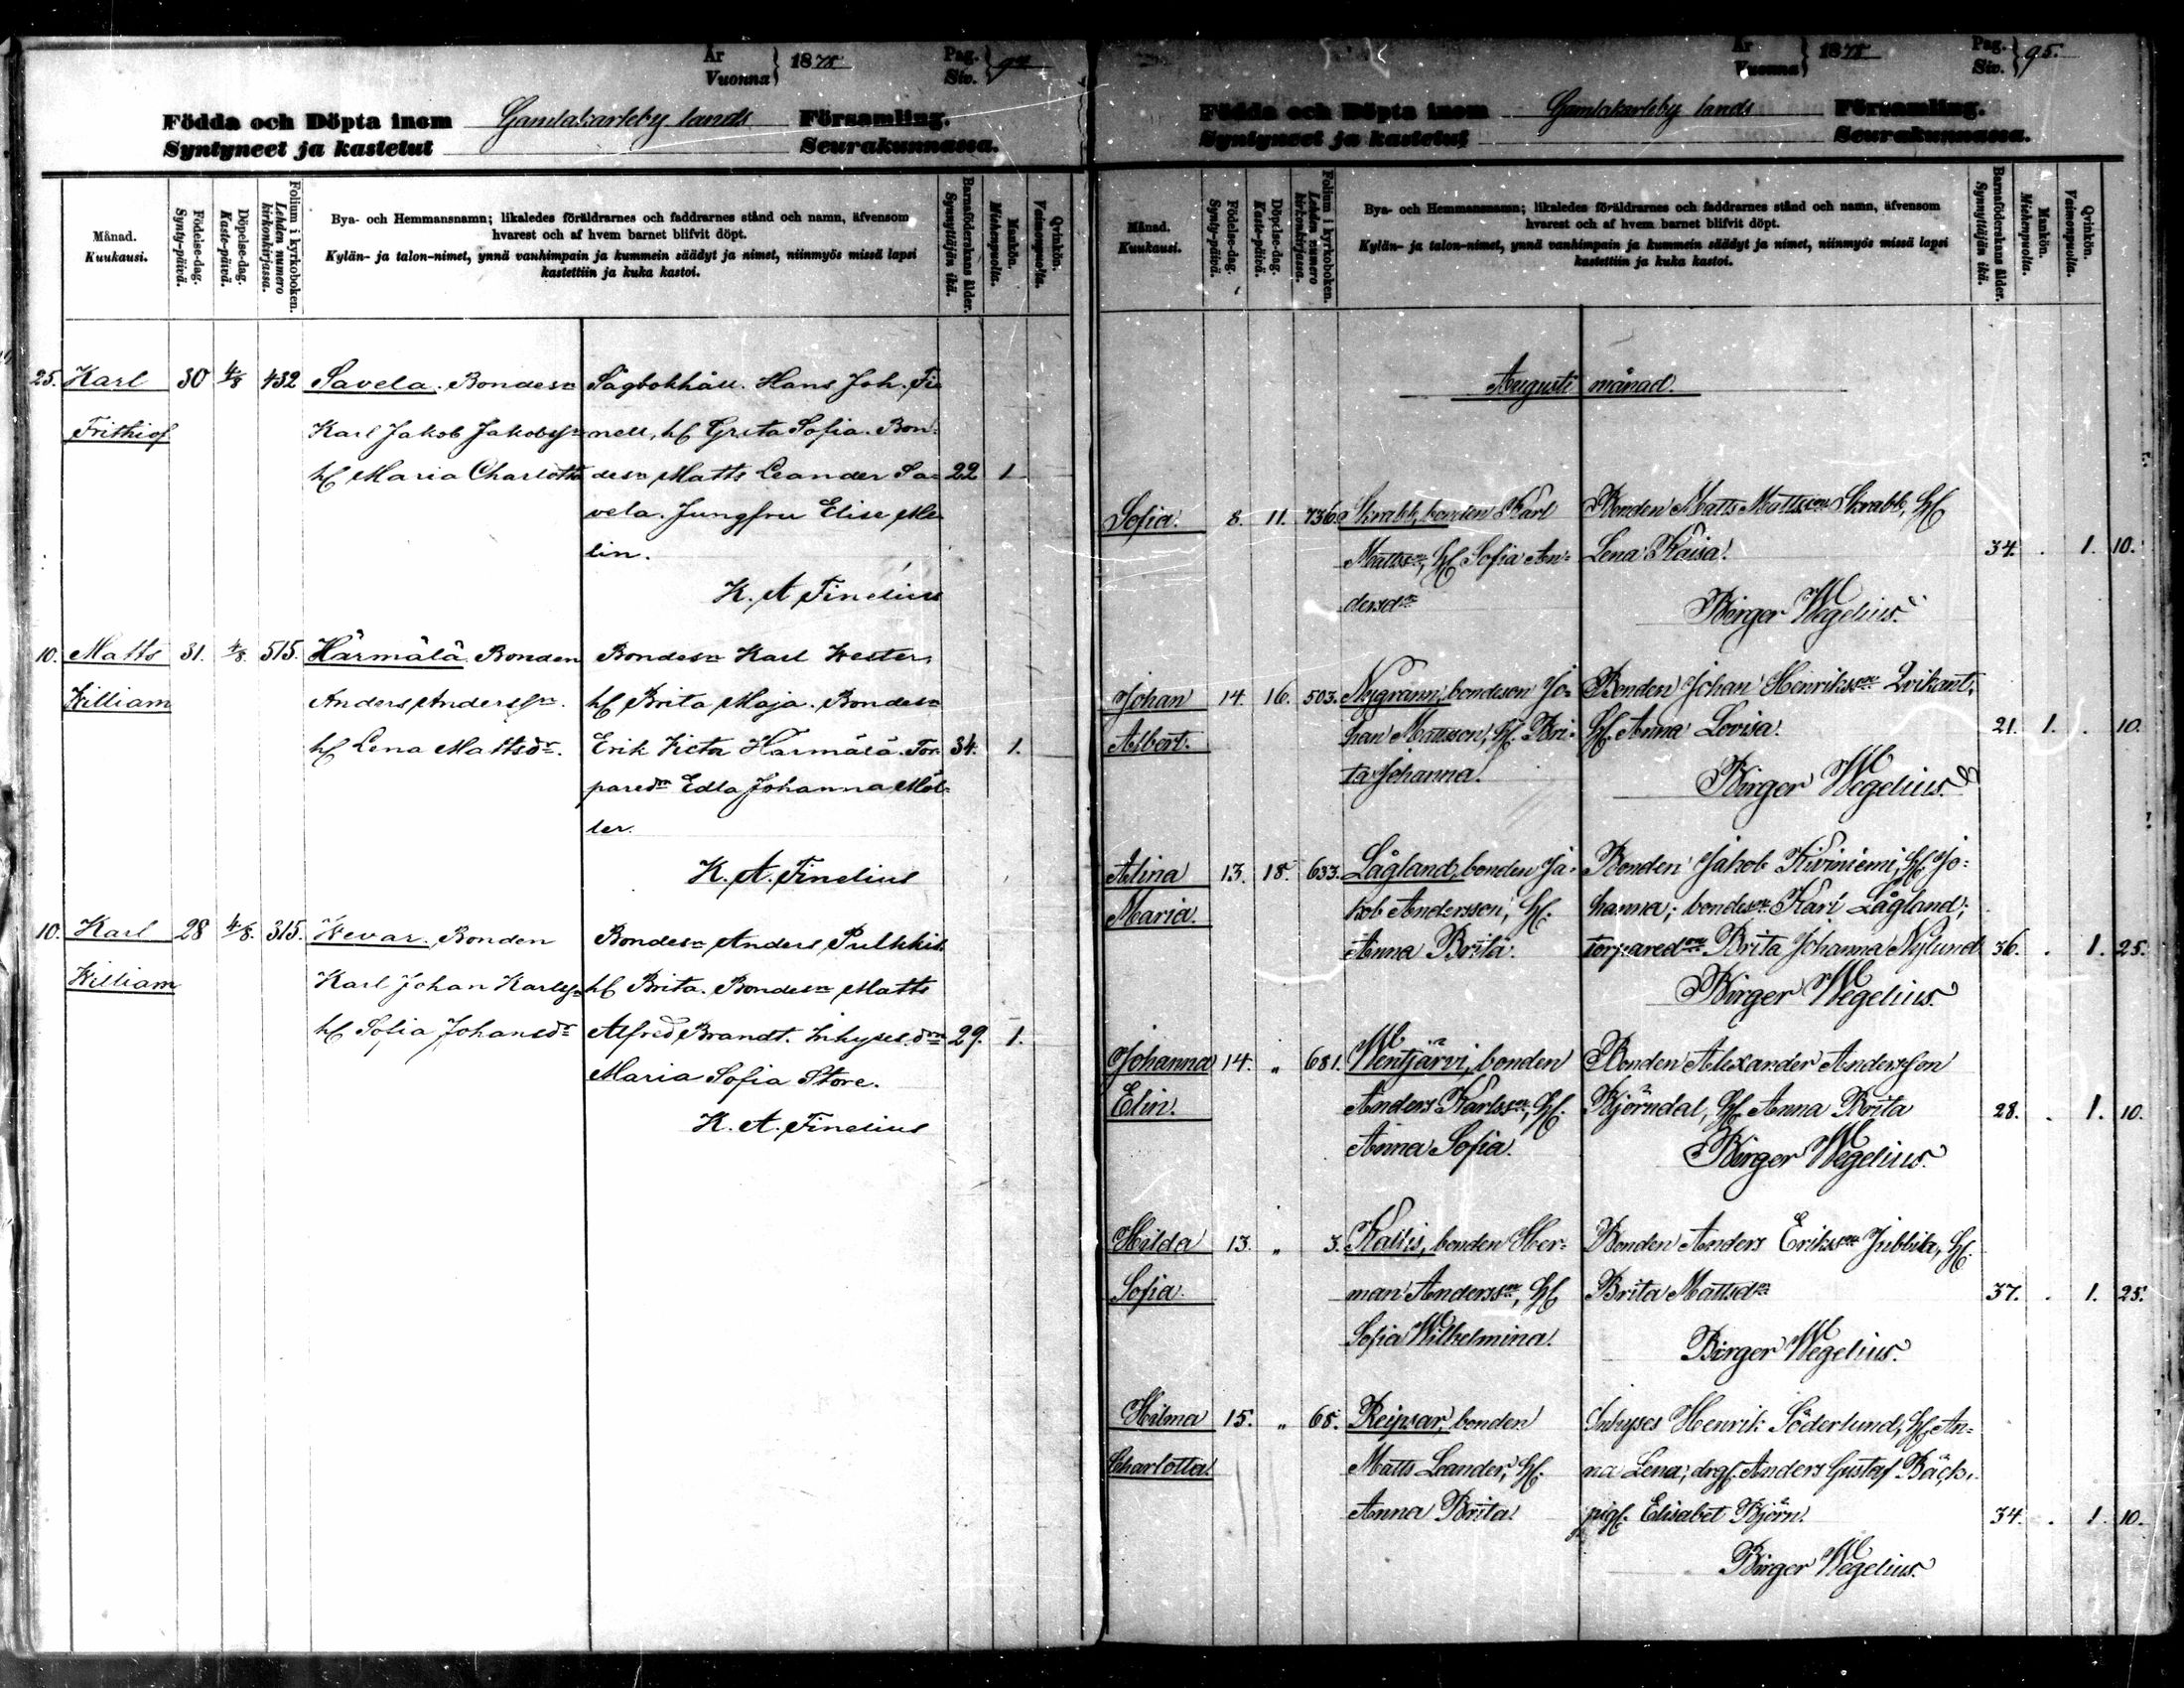 År
Vuonna } 1878.
Pag.
Siv. } 94
Födda och Döpta inom Gamlakarleby lands Församling.
Syntyneet ja kastetut Seurakunnassa.
Månad.
Kuukausi.
Födelse-dag.
Synty-päivä.
Döpelse-dag.
Kaste-päivä.
Folium i kyrkoboken.
Lehden numero kirkonkirjassa.
Bya- och Hemmansnamn; likaledes föräldrarnes och faddrarnes stånd och namn, äfvensom
hvarest och af hvem barnet blifvit döpt.
Kylän- ja talon-nimet, ynnä vanhimpain ja kummein säädyt ja nimet, niinmyös missä lapsi
kastettiin ja kuka kastoi.
Barnaföderskans ålder.
Synnyttäjän ikä.
Mankön.
Miehenpuolta.
Qvinkön.
Vaimonpuolta.
25. Karl 30 4/8 432 Savela. Bondesn Sågbokhåll. Hans Joh. Fi
Frithiof Karl Jakob Jakobsn nell, hf Greta Sofia. Bon-
hf Maria Charlotta desn Matts Leander Sa- 22 1
vela. Jungfru Elise Me
lin.
K. A. Finelius
10. Matts 31. 4/8. 515. Härmälä Bonden Bondesn Karl Wester,
William Anders Anderssn. hf Brita Maja. Bondesn
hf Lena Mattsdr. Erik Victor Härmälä. Tor- 34. 1.
paredr Edla Johanna Möl-
ler.
K. A. Finelius
10. Karl 28 4/8. 315. Wevar. Bonden Bondesn Anders Pulkkis
William Karl Johan Karlsn hf Brita. Bondesn Matts
hf Sofia Johansdr Alfred Brandt. Inhyses dr 29. 1.
Maria Sofia Store.
K. A. Finelius
År
Vuonna } 1878
Pag.
Siv. } 95.
Födda och Döpta inom Gamlakarleby lands Församling.
Syntyneet ja kastetut Seurakunnassa.
Månad.
Kuukausi.
Födelse-dag.
Synty-päivä.
Döpelse-dag.
Kaste-päivä.
Folium i kyrkoboken.
Lehden numero kirkonkirjassa.
Bya- och Hemmansnamn; likaledes föräldrarnes och faddrarnes stånd och namn, äfvensom
hvarest och af hvem barnet blifvit döpt.
Kylän- ja talon-nimet, ynnä vanhimpain ja kummein säädyt ja nimet, niinmyös missä lapsi
kastettiin ja kuka kastoi.
Barnaföderskans ålder.
Synnyttäjän ikä.
Mankön.
Miehenpuolta.
Qvinkön.
Vaimonpuolta.
Augusti månad.
Sofia. 8. 11. 736a Skrabb, bonden Karl Bonden Matts Mattsson Skrabb, hf
Mattsson, hf Sofia An- Lena Kaisa. 34. . 1. 10.
dersdr
Birger Wegelius.
Johan 14. 16. 503. Nygrann, bondeson Jo- Bonden Johan Henriksson Qvikant,
Albert. han Mattsson, hf. Bri- hf. Anna Lovisa. 21. 1. . 10.
ta Johanna.
Birger Wegelius.
Alina 13. 18. 633. Lågland, bonden Ja- Bonden Jakob Kiviniemi, hf Jo-
Maria. kob Andersson, hf. hanna; bondeson Karl Lågland;
Anna Brita. torparedr Brita Johanna Nylund 36. . 1. 25.
Birger Wegelius.
Johanna 14. " 681. Wentjärvi, bonden Bonden Alexander Andersson
Elin. Anders Karlsson, hf. Björndal, hf Anna Brita 28. . 1. 10.
Anna Sofia.
Birger Wegelius.
Hilda 13. " 3. Kallis, bonden Her- Bonden Anders Eriksson Jubbila, hf.
Sofia. man Andersson, hf Brita Mattsdr 37. . 1. 25.
Sofia Wilhelmina.
Birger Wegelius.
Hilma 15. " 68. Reipsar, bonden Inhyses Henrik Söderlund, hf An-
Charlotta. Matts Leander, hf. na Lena; drgf. Anders Gustaf Bäck,
Anna Brita pigf. Elisabet Björn. 34. . 1. 10.
Birger Wegelius.